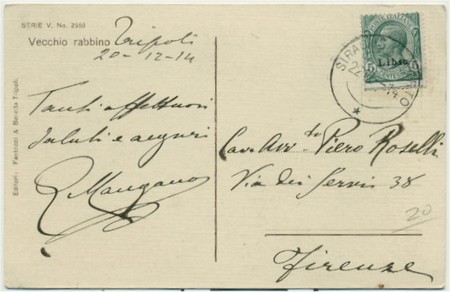 SERIE V. No. 2986
Vecchio rabbino Tripoli
20-12-14
Tanti affettuosi
saluti e auguri
R. Mangano
Editori: Fantozzi & Benalta Tripoli.
Libia
Cav. Avv.to Piero Roselli
Via dei Servi 38
20
Firenze